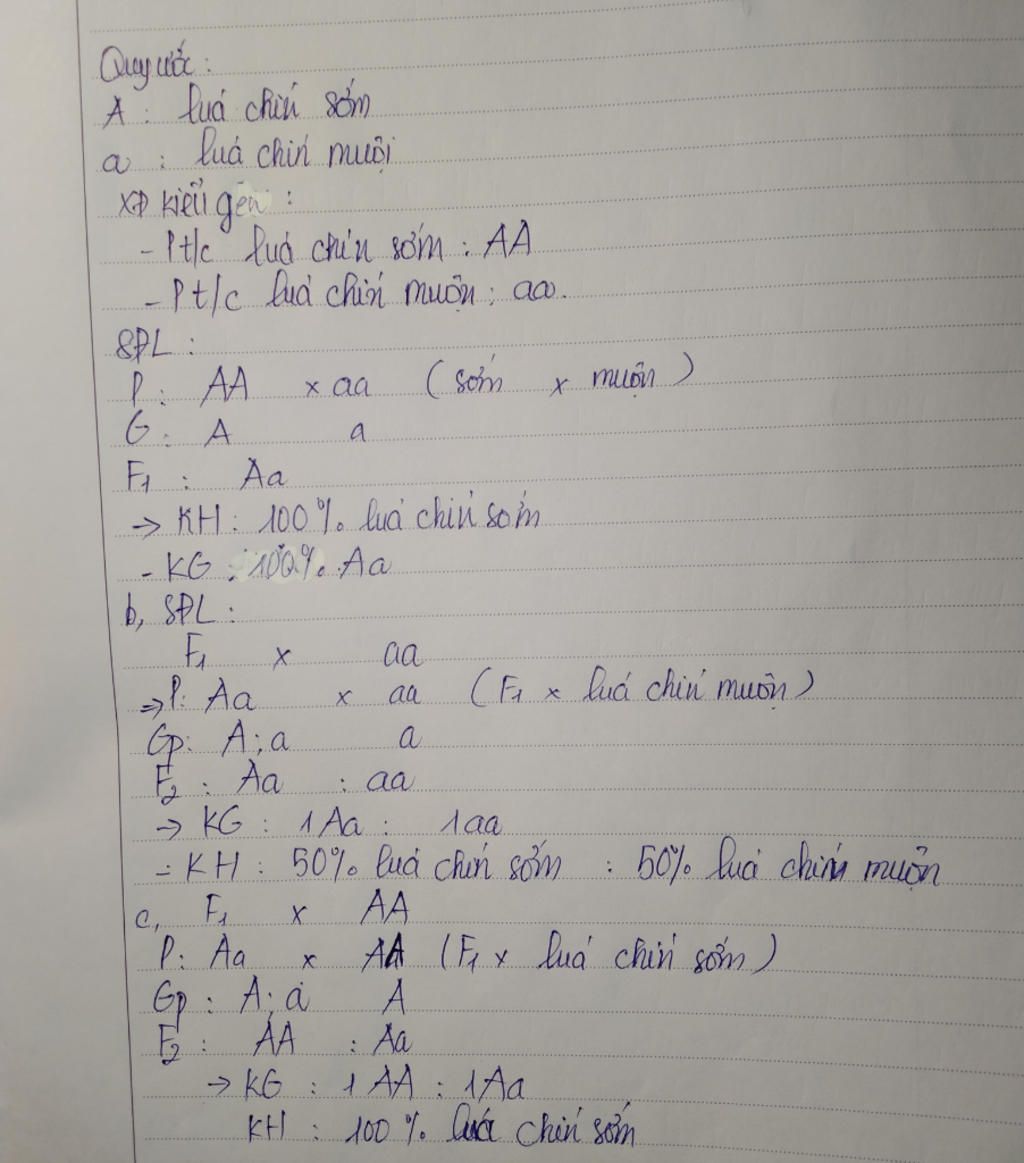 Quy ước :
A : luá chín sớm
a : luá chín muội
XĐ kiểu gen :
- Pt/c luá chín sớm : AA
- Pt/c luá chín muộn : aa.
SĐL :
P : AA x aa ( sớm x muộn )
G : A a
F1 : Aa
→ KH : 100 % luá chín sớm
- KG : 100% Aa
b, SĐL :
F1 x aa
⇒ P: Aa x aa ( F1 x luá chín muộn )
Gp: A ; a a
F2 : Aa : aa
→ KG : 1 Aa : 1aa
- KH : 50% luá chín sớm : 50% luá chín muộn
c, F1 x AA
P: Aa x AA ( F1 x luá chín sớm )
Gp : A ; a A
F2 : AA : Aa
→ KG : 1 AA : 1Aa
KH : 100 % luá chín sớm